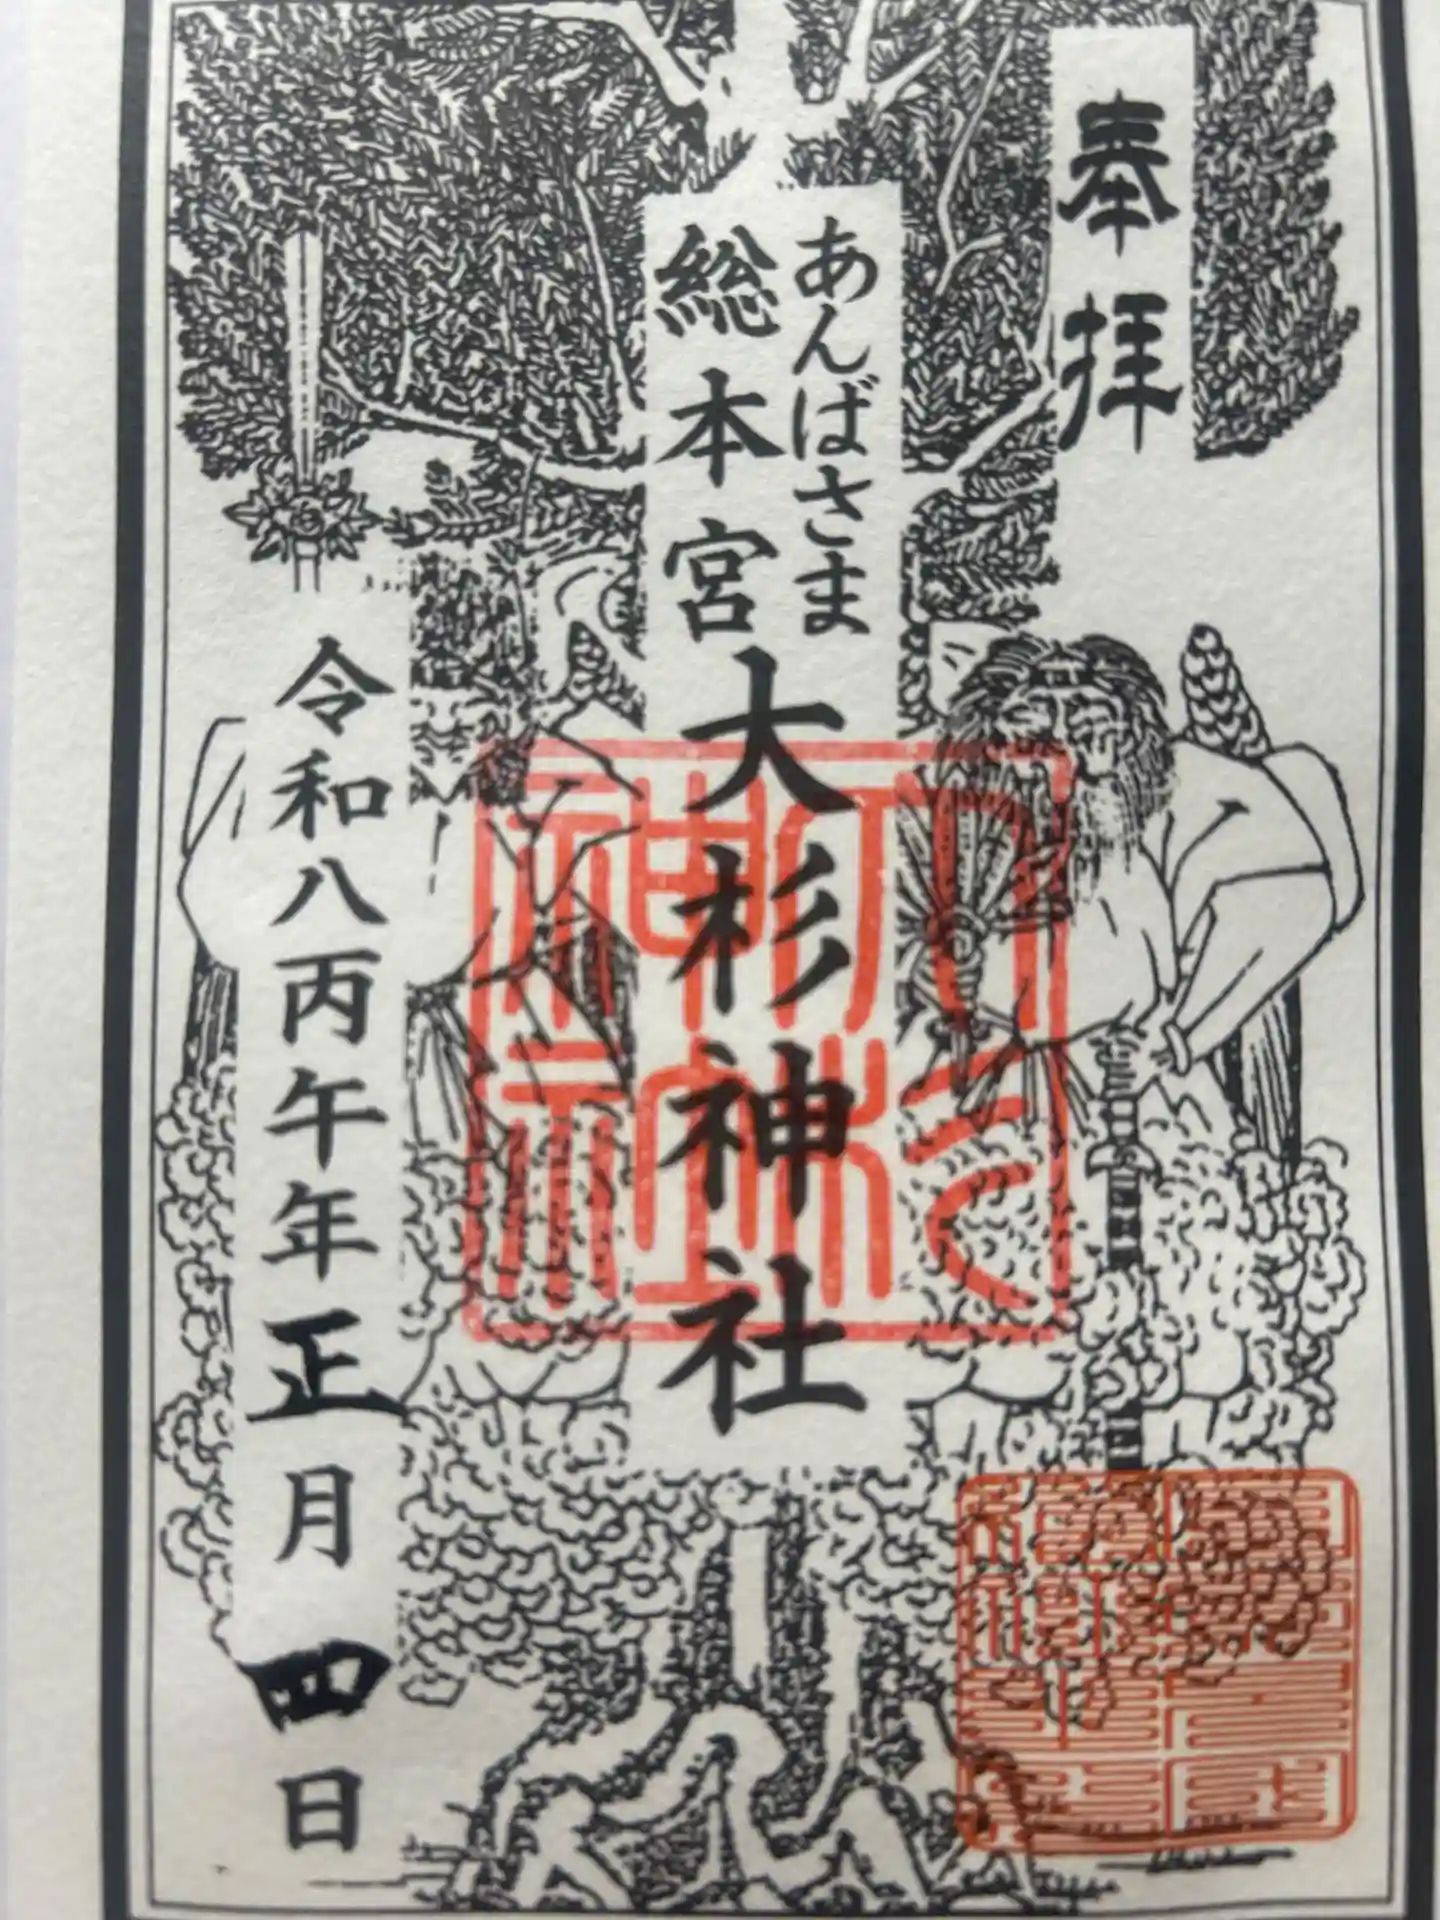 奉拝
あんばさま
総本宮
大杉神社
大杉神社
令和八丙午年正月四日